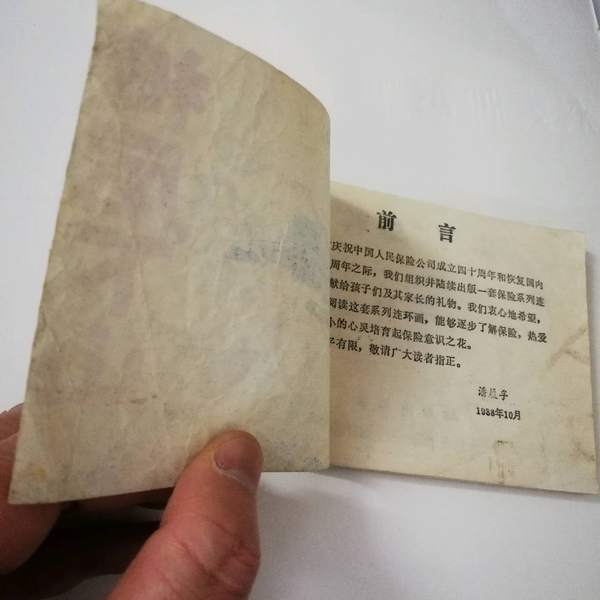 前言
庆祝中国人民保险公司成立四十周年和恢复国内
周年之际，我们组织并陆续出版一套保险系列连
献给孩子们及其家长的礼物。我们衷心地希望，
阅读这套系列连环画，能够逐步了解保险，热爱
小的心灵培育起保险意识之花。
有限，敬请广大读者指正。
1988年10月